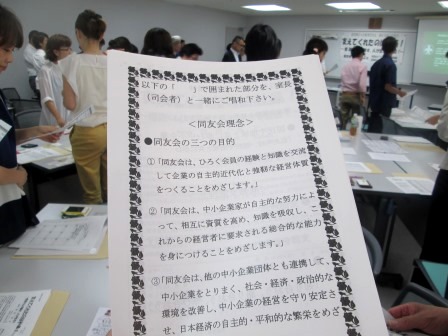 以下の「　　」で囲まれた部分を、室長
（司会者）と一緒にご唱和下さい。
＜同友会理念＞
●同友会の三つの目的
①「同友会は、ひろく会員の経験と知識を交流
して企業の自主的近代化と強靭な経営体質
をつくることをめざします。」
②「同友会は、中小企業家が自主的な努力によ
って、相互に資質を高め、知識を吸収し、こ
れからの経営者に要求される総合的な能力
を身につけることをめざします。」
③「同友会は、他の中小企業団体とも連携して、
中小企業をとりまく、社会・経済・政治的な
環境を改善し、中小企業の経営を守り安定さ
せ、日本経済の自主的・平和的な繁栄をめざ